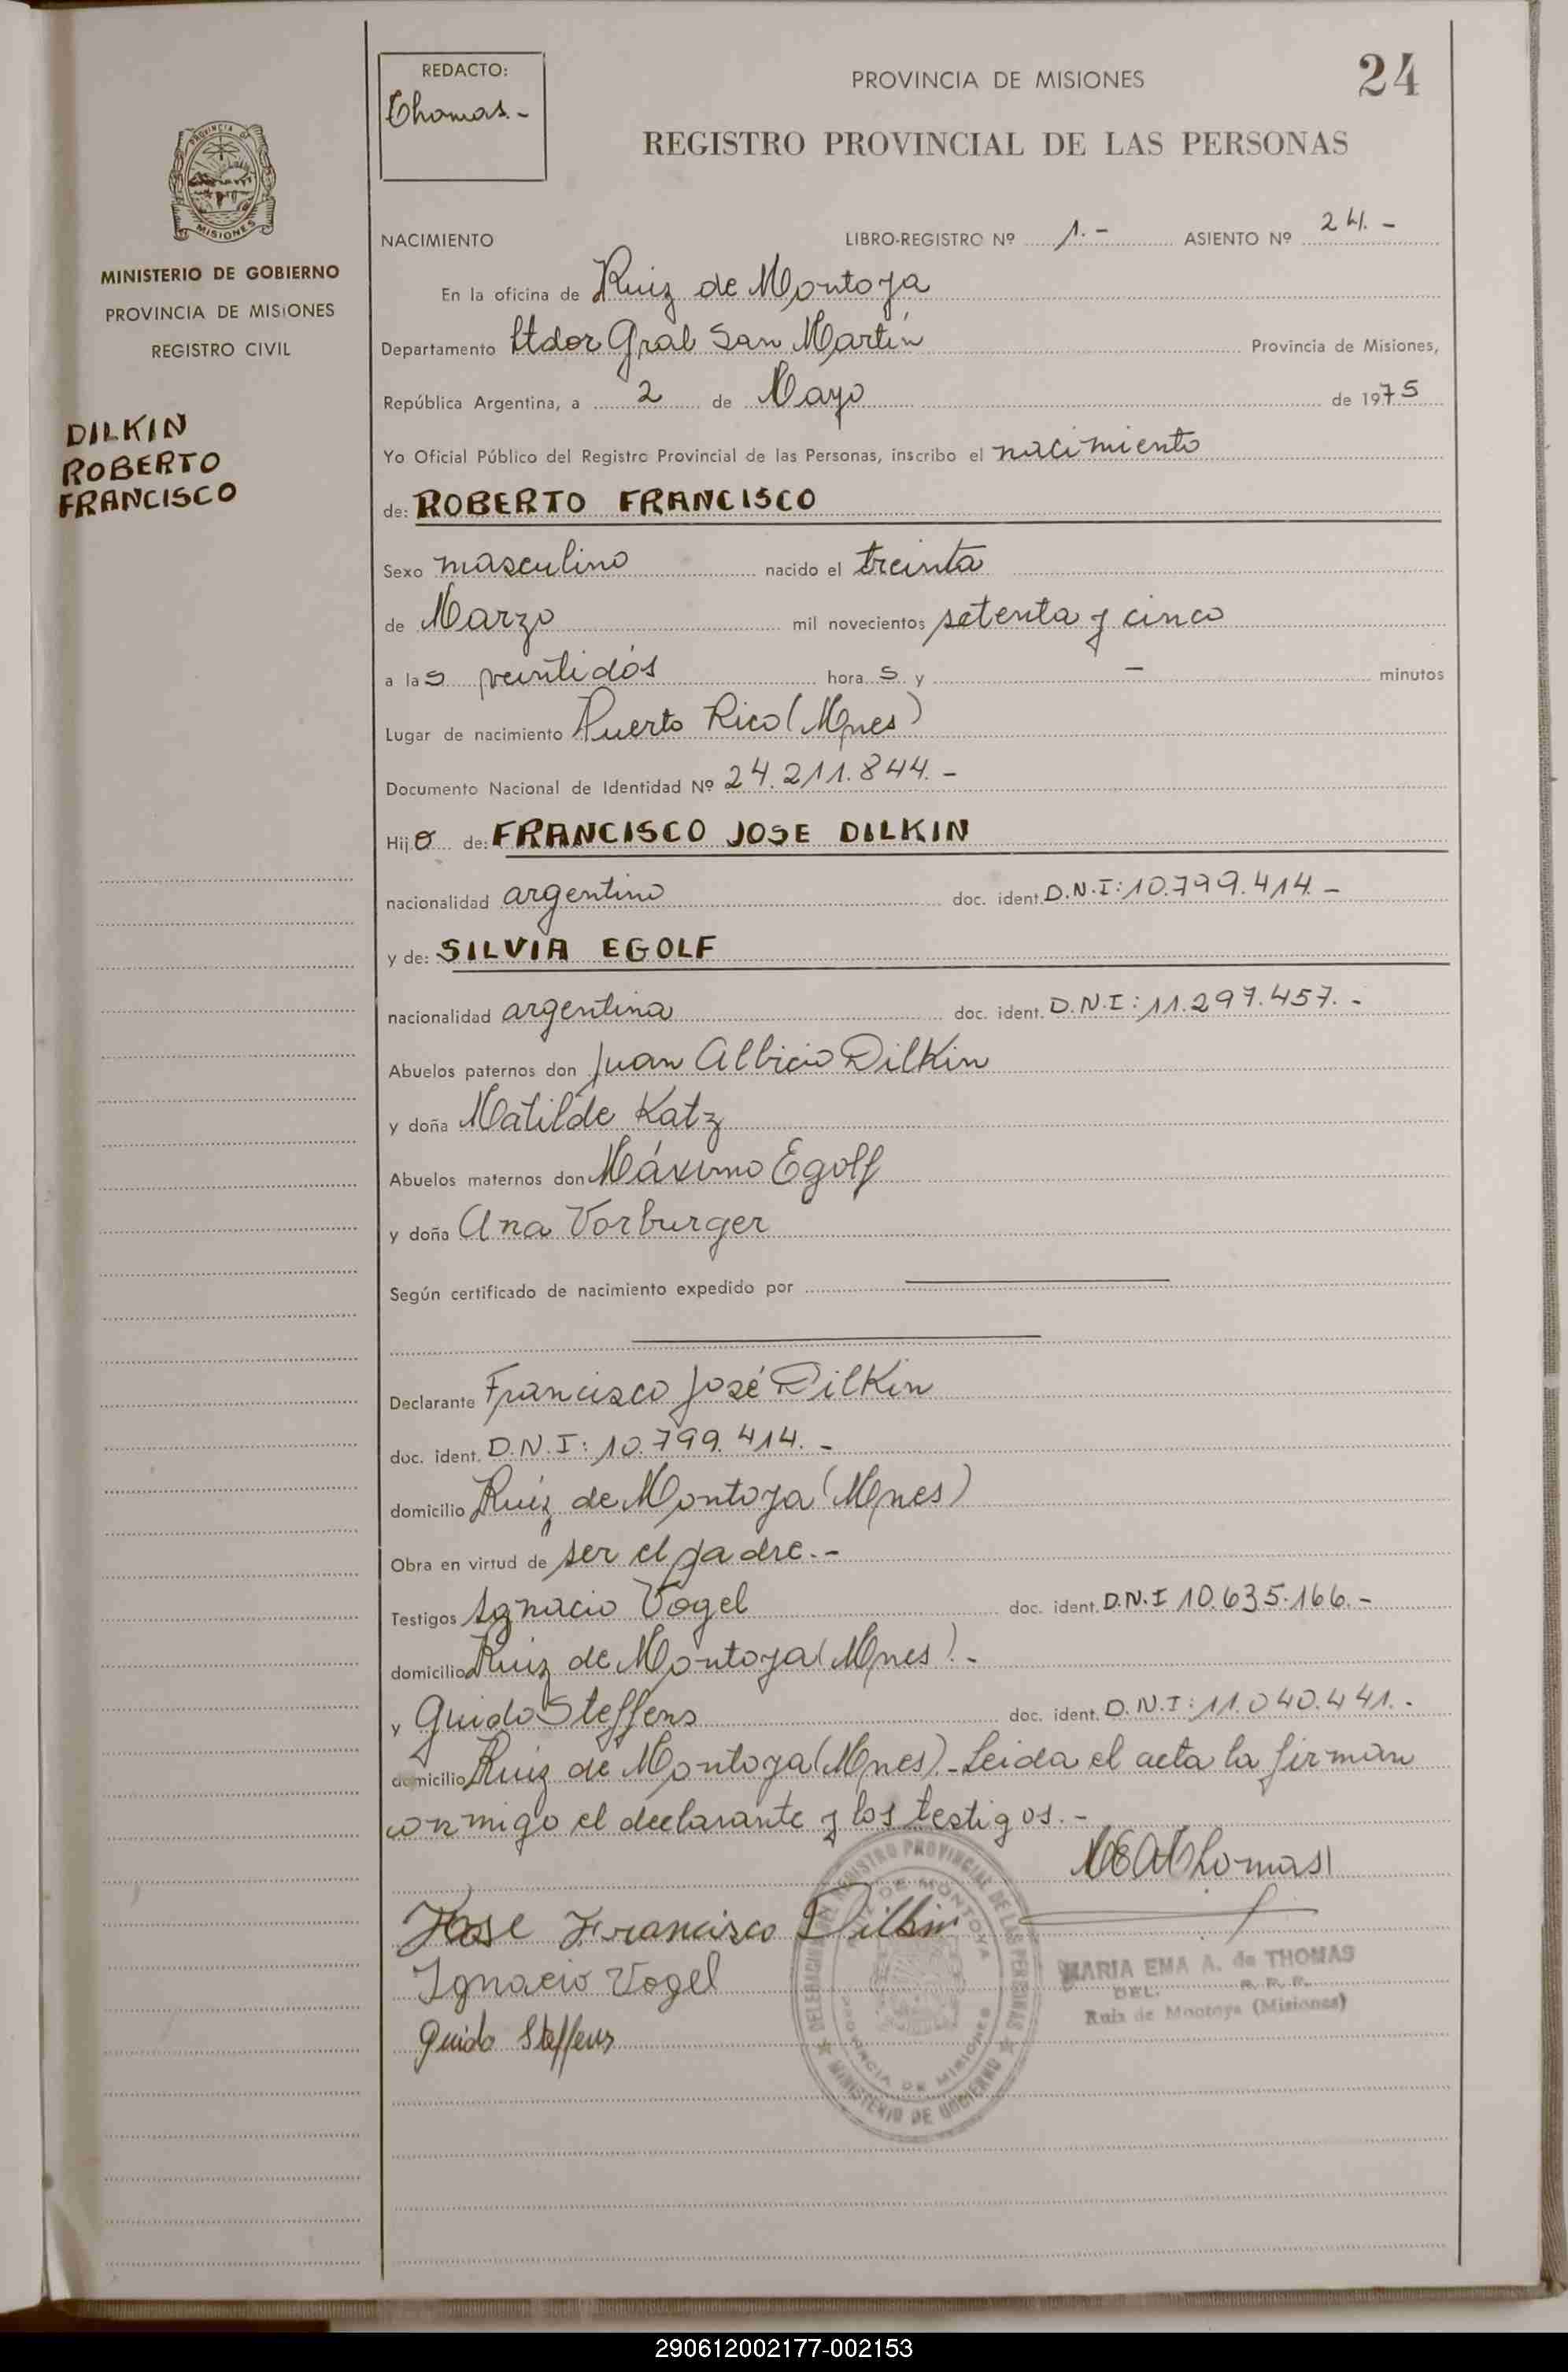 24
REDACTO:
Thomas.-
PROVINCIA DE MISIONES
REGISTRO PROVINCIAL DE LAS PERSONAS
PROVINCIA DE
MISIONES
MINISTERIO DE GOBIERNO
PROVINCIA DE MISIONES
REGISTRO CIVIL
DILKIN
ROBERTO
FRANCISCO
NACIMIENTO LIBRO-REGISTRO Nº 1.- ASIENTO Nº 24.-
En la oficina de Ruiz de Montoya
Departamento Ltdor Gral San Martín Provincia de Misiones,
República Argentina, a 2 de Mayo de 1975
Yo Oficial Público del Registro Provincial de las Personas, inscribo el nacimiento
de: ROBERTO FRANCISCO
Sexo masculino nacido el treinta
de Marzo mil novecientos setenta y cinco
a las veintidós horas y — minutos
Lugar de nacimiento Puerto Rico (Mnes)
Documento Nacional de Identidad Nº 24.211.844.-
Hijo de: FRANCISCO JOSE DILKIN
nacionalidad argentino doc. ident. D.N.I: 10.799.414.-
y de: SILVIA EGOLF
nacionalidad argentina doc. ident. D.N.I: 11.297.457.-
Abuelos paternos don Juan Albicio Dilkin
y doña Matilde Katz
Abuelos maternos don Máximo Egolf
y doña Ana Vorburger
Según certificado de nacimiento expedido por
Declarante Francisco José Dilkin
doc. ident. D.N.I: 10.799.414.-
domicilio Ruiz de Montoya (Mnes)
Obra en virtud de ser el padre.-
Testigos Ignacio Vogel doc. ident. D.N.I 10.635.166.-
domicilio Ruiz de Montoya (Mnes).-
y Guido Steffens doc. ident. D.N.I: 11.040.441.-
domicilio Ruiz de Montoya (Mnes).- Leida el acta la firman
conmigo el declarante y los testigos.-
MEAThomas
Jose Francisco Dilkin
Ignacio Vogel
Guido Steffens
DELEGACION DEL REGISTRO PROVINCIAL DE LAS PERSONAS
MINISTERIO DE GOBIERNO
RUIZ DE MONTOYA
PROVINCIA DE MISIONES
MARIA EMA A. de THOMAS
DEL. R. P. P.
Ruiz de Montoya (Misiones)
290612002177-002153